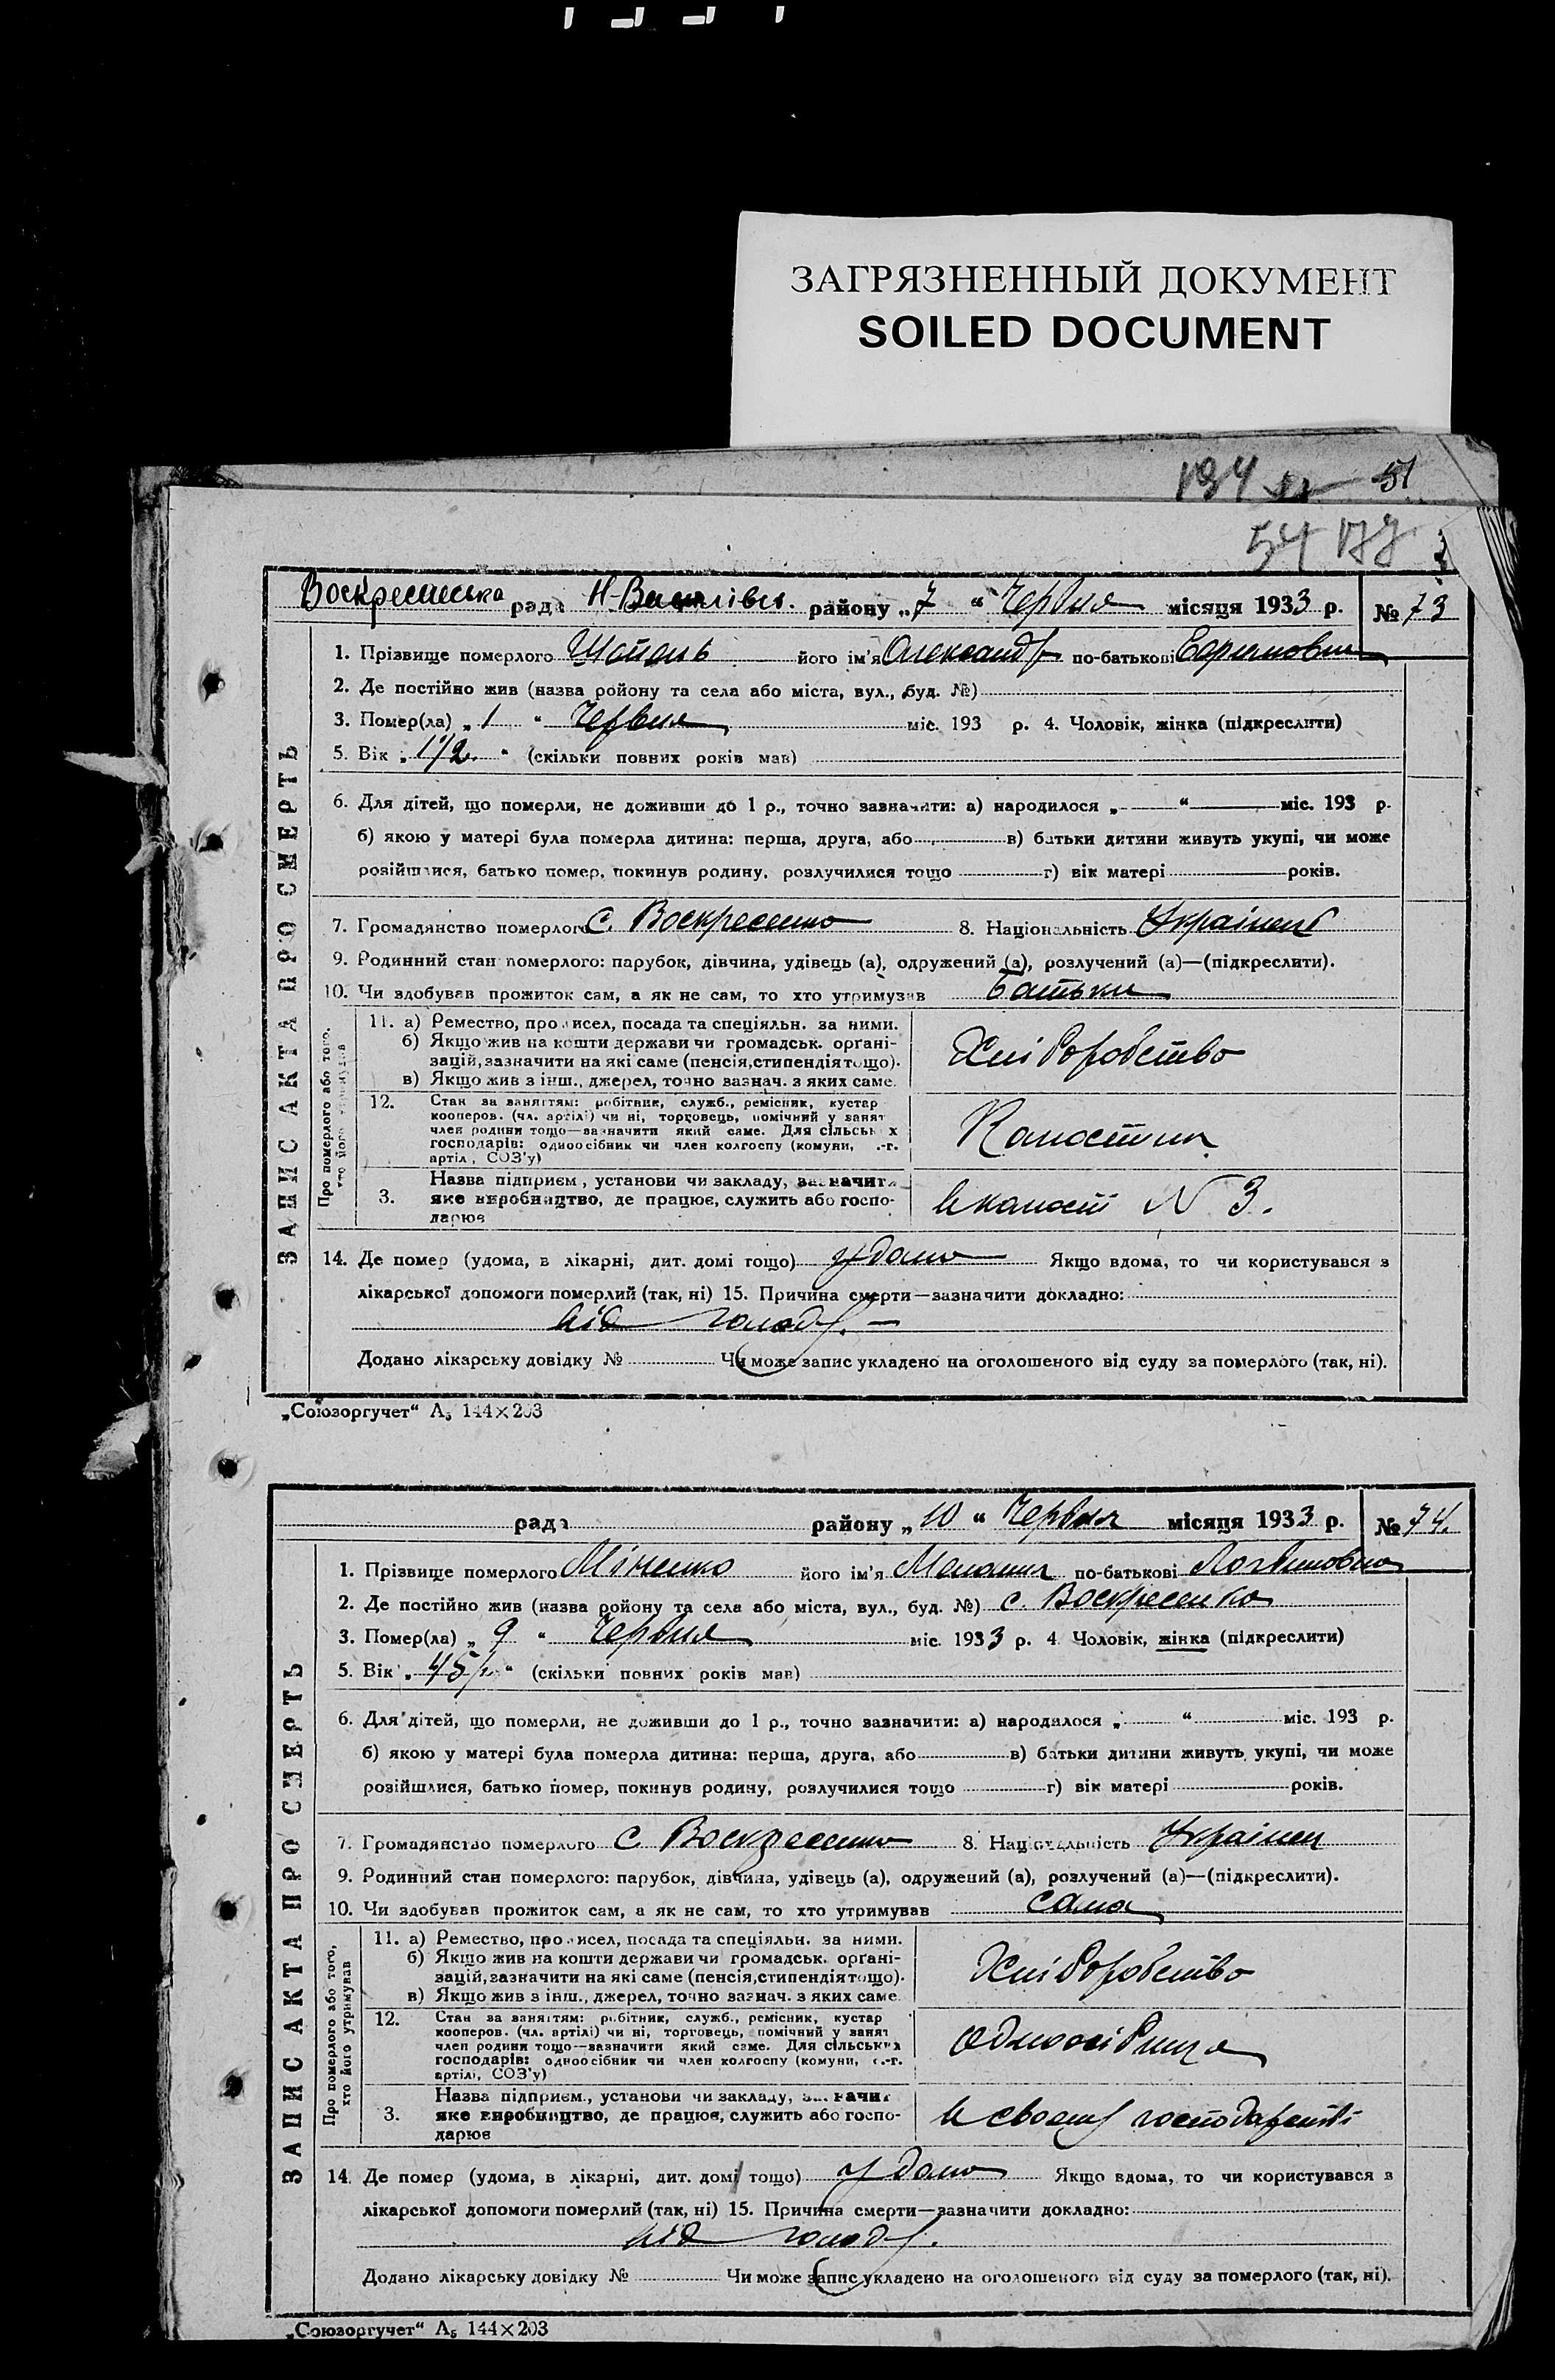 ЗАГРЯЗНЕННЫЙ ДОКУМЕНТ
SOILED DOCUMENT
194 51
54 177
Воскресенська рада Н-Василівсь. району „7 “ Червня місяця 1933 р. № 73
1. Прізвище померлого його ім'я Олександр по-батькові
2. Де постійно жив (назва ройону та села або міста, вул., буд. №)
3. Помер(ла) „ 1 “ Червня міс. 193 р. 4. Чоловік, жінка (підкреслити)
5. Вік „ 1 1/2 “ (скільки повних років мав)
6. Для дітей, що померли, не доживши до 1 р., точно зазначити: а) народилося „ “ міс. 193 р.
б) якою у матері була померла дитина: перша, друга, або в) батьки дитини живуть укупі, чи може
розійшлися, батько помер, покинув родину, розлучилися тощо г) вік матері років.
7. Громадянство померлого с. Воскресенко 8. Національність Українець
9. Родинний стан померлого: парубок, дівчина, удівець (а), одружений (а), розлучений (а)—(підкреслити).
10. Чи здобував прожиток сам, а як не сам, то хто утримував батьки
11. а) Ремество, промисел, посада та спеціяльн. за ними.
б) Якщо жив на кошти держави чи громадськ. органі-
зацій, зазначити на які саме (пенсія, стипендія тощо).
в) Якщо жив з інш., джерел, точно зазнач. з яких саме.
Хліборобство
12. Стан за заняттям: робітник, служб., ремісник, кустар
кооперов. (чл. артілі) чи ні, торговець, помічний у занят
член родини тощо—зазначити який саме. Для сільськ х
господарів: одноосібник чи член колгоспу (комуни, с.-г.
артіл, СОЗ'у)
Колостник
3. Назва підприєм, установи чи закладу, зазначити
яке виробництво, де працює, служить або госпо-
дарює
в колості N 3.
14. Де помер (удома, в лікарні, дит. домі тощо) удома Якщо вдома, то чи користувався з
лікарської допомоги померлий (так, ні) 15. Причина смерти—зазначити докладно:
від голоду. —
Додано лікарську довідку № Чи може запис укладено на оголошеного від суду за померлого (так, ні).
ЗАПИС АКТА ПРО СМЕРТЬ
Про померлого або того, хто його утримував
„Союзоргучет“ А5 144×203
рада району „ 10 “ Червня місяця 1933 р. № 74.
1. Прізвище померлого Міненко його ім'я Мелания по-батькові Логвиновна
2. Де постійно жив (назва ройону та села або міста, вул., буд. №) с. Воскресенко
3. Помер(ла) „ 9 “ Червня міс. 1933 р. 4 Чоловік, жінка (підкреслити)
5. Вік „ 45 р. “ (скільки повних років мав)
6. Для дітей, що померли, не доживши до 1 р., точно зазначити: а) народилося „ “ міс. 193 р.
б) якою у матері була померла дитина: перша, друга, або в) батьки дитини живуть укупі, чи може
розійшлися, батько помер, покинув родину, розлучилися тощо г) вік матері років.
7. Громадянство померлого с. Воскресенко 8. Національність Українец
9. Родинний стан померлого: парубок, дівчина, удівець (а), одружений (а), розлучений (а)—(підкреслити).
10. Чи здобував прожиток сам, а як не сам, то хто утримував сама
11. а) Ремество, промисел, посада та спеціяльн. за ними.
б) Якщо жив на кошти держави чи громадськ. органі-
зацій, зазначити на які саме (пенсія, стипендія тощо).
в) Якщо жив з інш., джерел, точно зазнач. з яких саме
Хліборобство
12. Стан за заняттям: робітник, служб., ремісник, кустар
кооперов. (чл. артілі) чи ні, торговець, помічний у занят
член родини тощо—зазначити який саме. Для сільських
господарів: одноосібник чи член колгоспу (комуни, с.-г.
артілі, СОЗ'у)
Одноосібниця
3. Назва підприєм., установи чи закладу, зазначит
яке виробництво, де працює, служить або госпо-
дарює
в своему господарстві
14. Де помер (удома, в лікарні, дит. домі тощо) удома Якщо вдома, то чи користувався з
лікарської допомоги померлий (так, ні) 15. Причина смерти—зазначити докладно:
від голоду.
Додано лікарську довідку № Чи може запис укладено на оголошеного від суду за померлого (так, ні).
ЗАПИС АКТА ПРО СМЕРТЬ
Про померлого або того, хто його утримував
„Союзоргучет“ А5 144×203